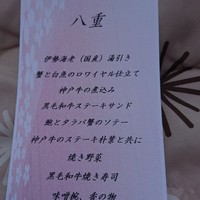 八重
伊勢海老（国産）湯引き
蟹と白魚のロワイヤル仕立て
神戸牛の煮込み
黒毛和牛ステーキサンド
鮑とタラバ蟹のソテー
神戸牛のステーキ朴葉と共に
焼き野菜
黒毛和牛焼き寿司
味噌椀、香の物